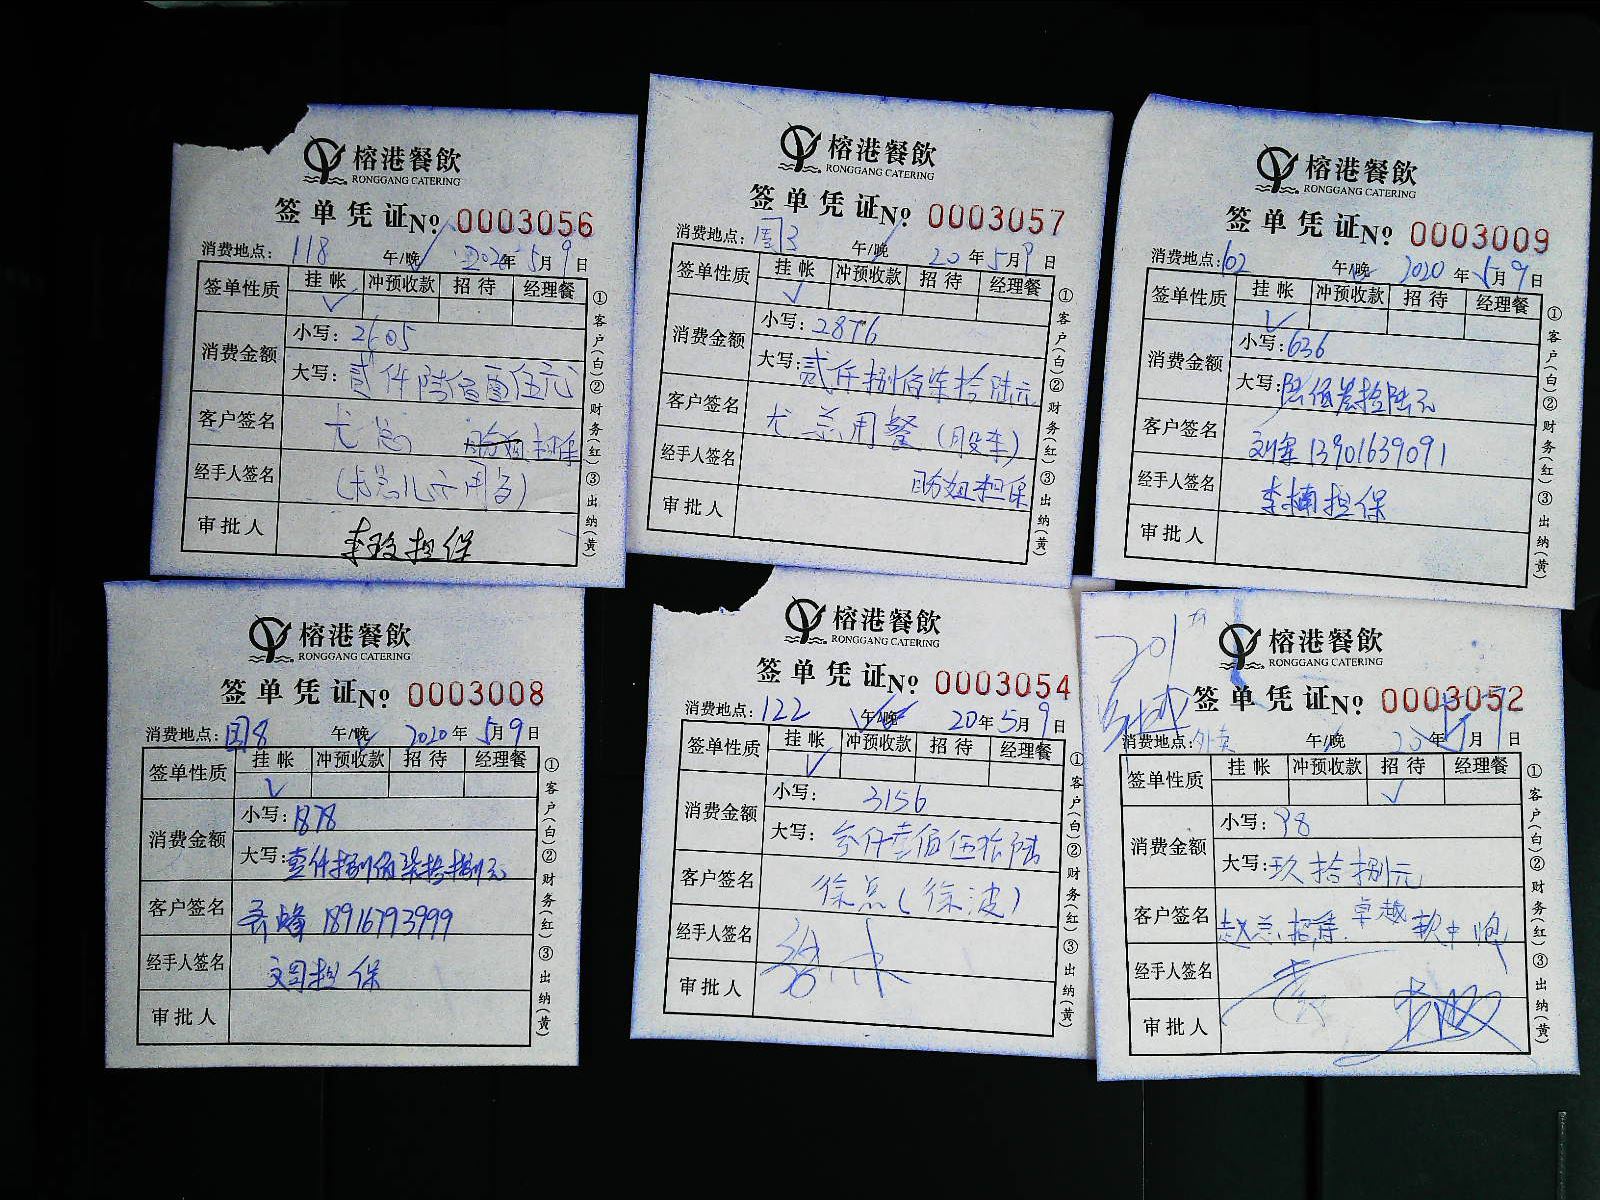 榕港餐飲
RONGGANG CATERING
签单凭证 No 0003056
消费地点: 118 午/晚 2020年5月9日
签单性质 挂帐 冲预收款 招待 经理餐
✓
消费金额 小写: 2605
大写: 贰仟陆佰零伍元
客户签名 尤总 担保
经手人签名
审批人 李玫担保
①客户(白)②财务(红)③出纳(黄)
榕港餐飲
RONGGANG CATERING
签单凭证 No 0003057
消费地点: 团3 午/晚 20年5月9日
签单性质 挂帐 冲预收款 招待 经理餐
✓
消费金额 小写: 2876
大写: 贰仟捌佰柒拾陆元
客户签名 尤总用餐
经手人签名 姐担保
审批人
①客户(白)②财务(红)③出纳(黄)
榕港餐飲
RONGGANG CATERING
签单凭证 No 0003009
消费地点: 102 午/晚 2020年5月9日
签单性质 挂帐 冲预收款 招待 经理餐
✓
消费金额 小写: 636
大写: 陆佰叁拾陆元
客户签名 刘军 13901639091
经手人签名 李楠担保
审批人
①客户(白)②财务(红)③出纳(黄)
榕港餐飲
RONGGANG CATERING
签单凭证 No 0003008
消费地点: 团8 午/晚 2020年5月9日
签单性质 挂帐 冲预收款 招待 经理餐
✓
消费金额 小写: 1878
大写: 壹仟捌佰柒拾捌元
客户签名 18916793999
经手人签名 担保
审批人
①客户(白)②财务(红)③出纳(黄)
榕港餐飲
RONGGANG CATERING
签单凭证 No 0003054
消费地点: 122 午/晚 20年5月9日
签单性质 挂帐 冲预收款 招待 经理餐
✓
消费金额 小写: 3156
大写: 叁仟壹佰伍拾陆
客户签名 徐总(徐波)
经手人签名
审批人
①客户(白)②财务(红)③出纳(黄)
榕港餐飲
RONGGANG CATERING
签单凭证 No 0003052
消费地点: 外卖 午/晚 20年5月9日
签单性质 挂帐 冲预收款 招待 经理餐
✓
消费金额 小写: 98
大写: 玖拾捌元
客户签名 赵总招待 卓越 软中
经手人签名
审批人
①客户(白)②财务(红)③出纳(黄)